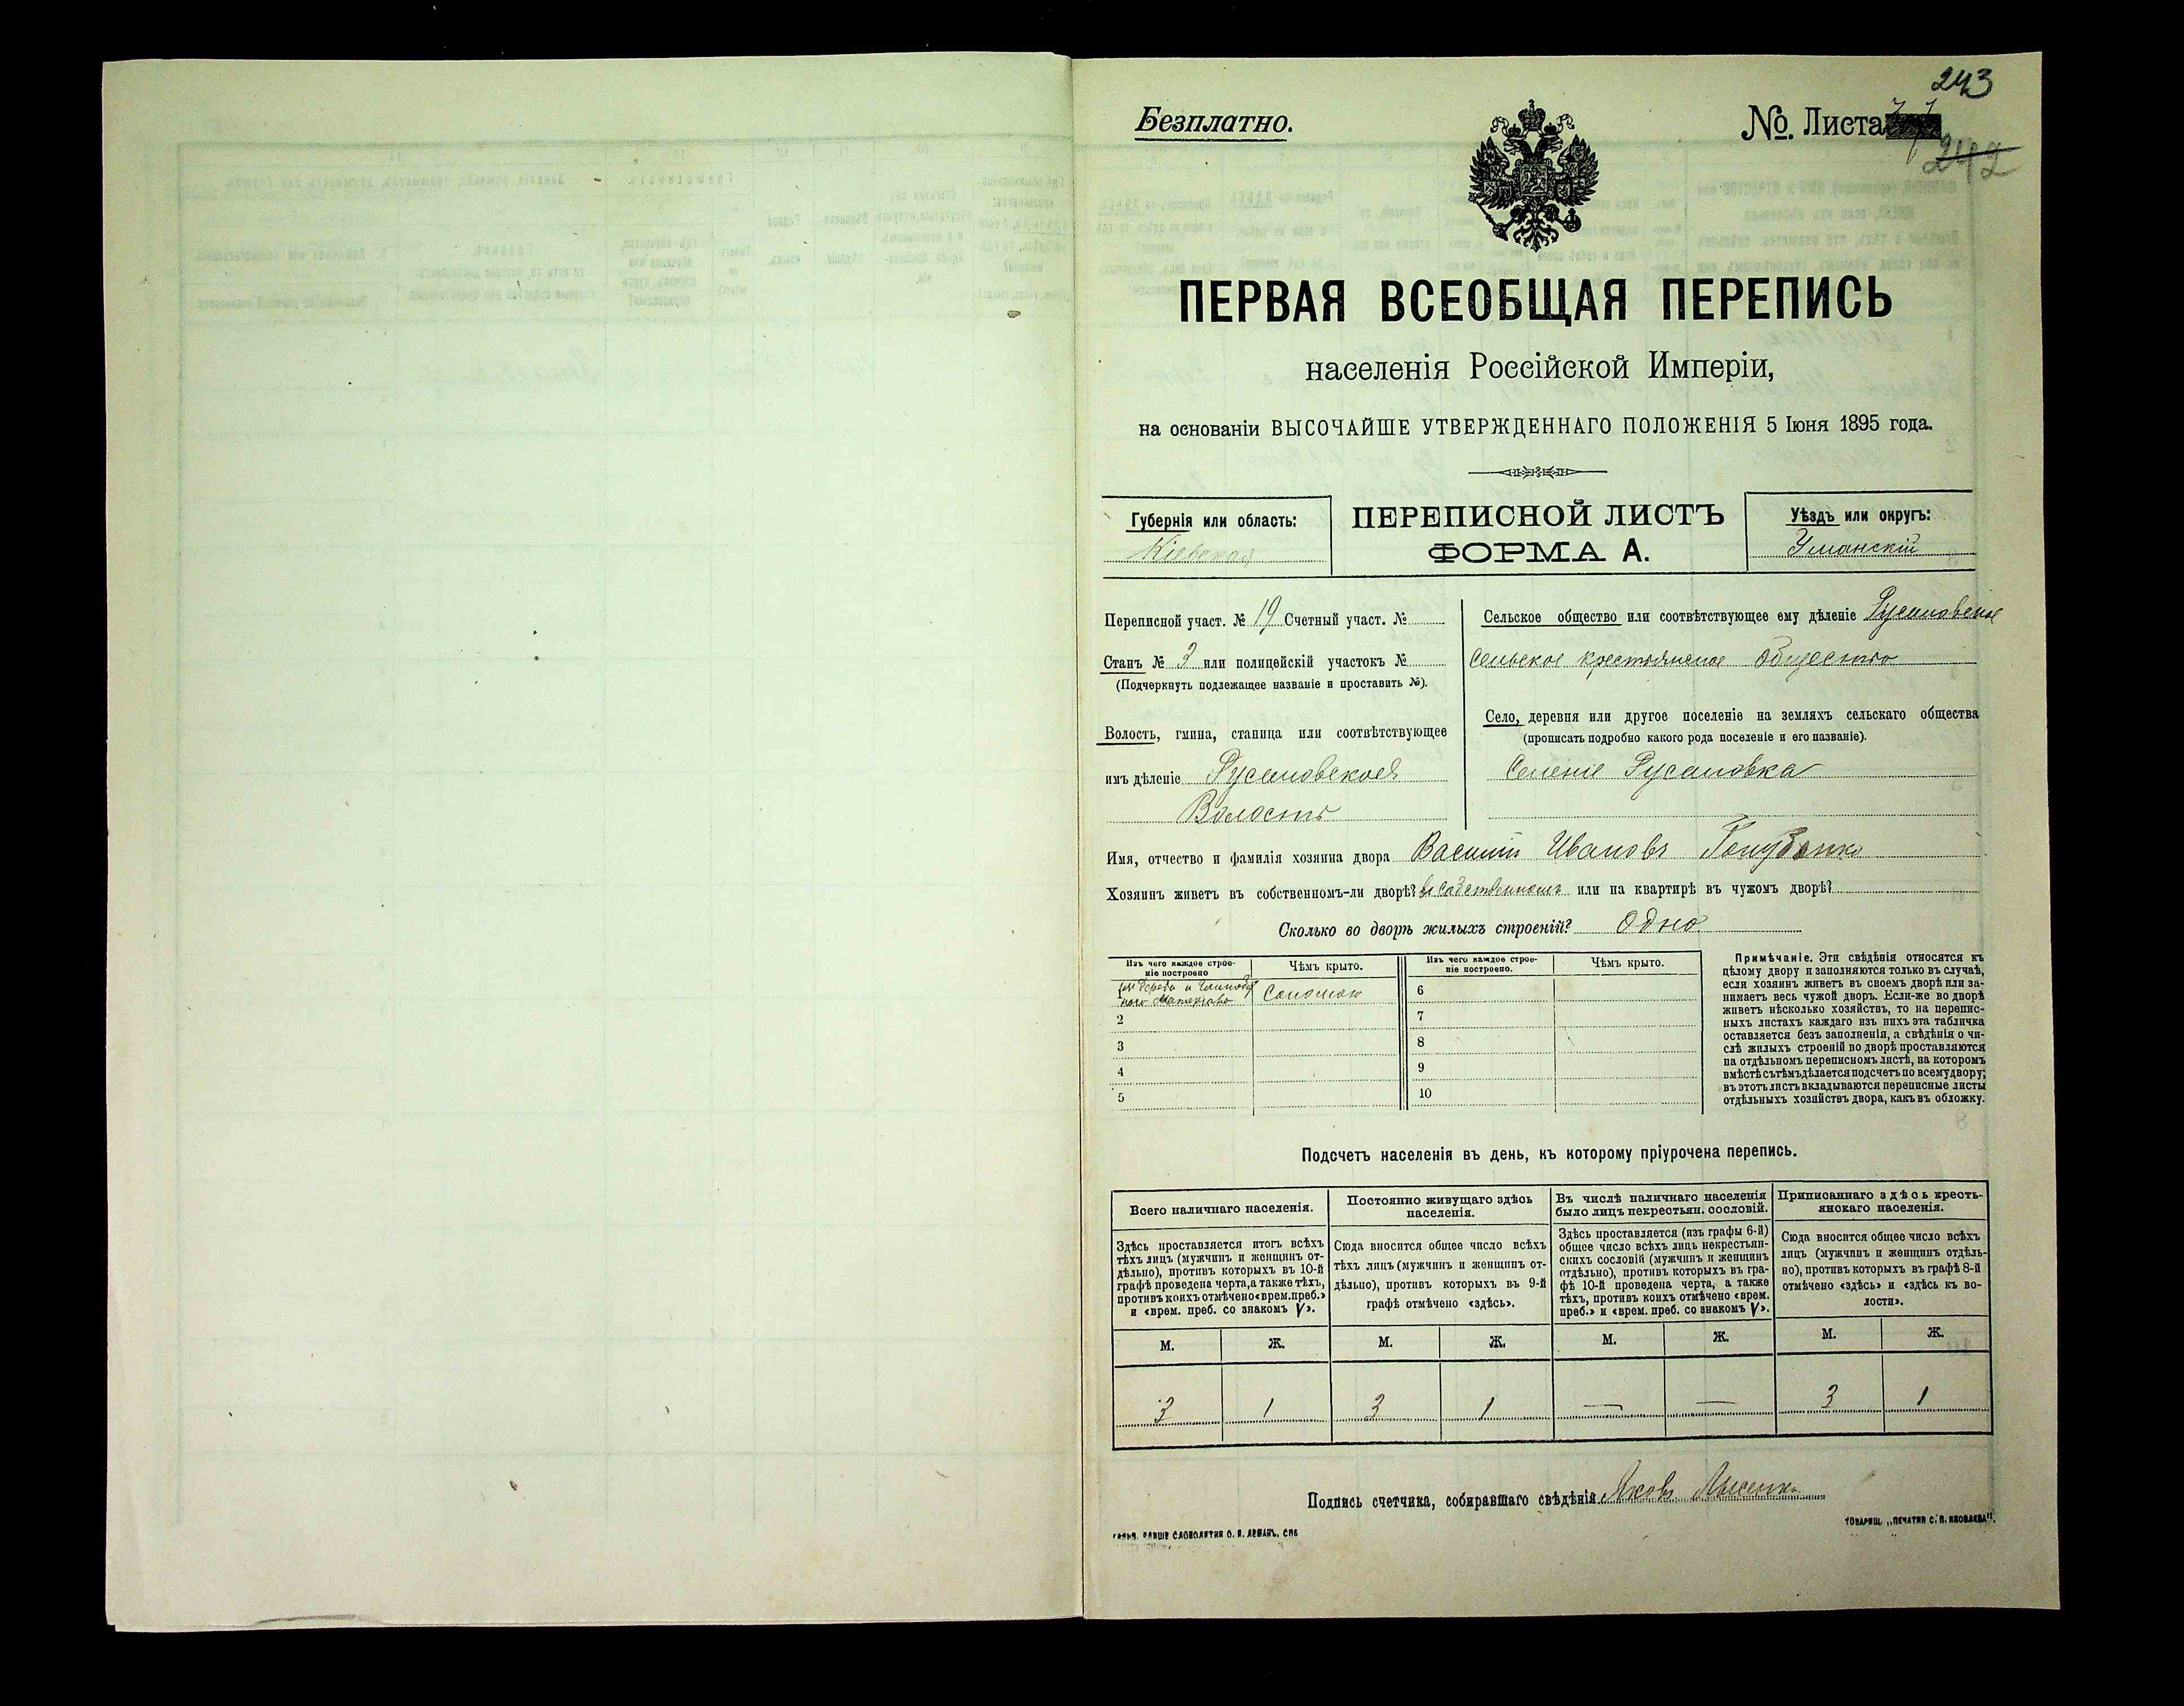 243
Безплатно.
№. Листа
242
ПЕРВАЯ ВСЕОБЩАЯ ПЕРЕПИСЬ
населенія Россійской Имперіи,
на основаніи ВЫСОЧАЙШЕ УТВЕРЖДЕННАГО ПОЛОЖЕНІЯ 5 Іюня 1895 года.
Губернія или область:
Кіевская
ПЕРЕПИСНОЙ ЛИСТЪ
ФОРМА А.
Уѣздъ или округъ:
Уманскій
Переписной участ. № 19 Счетный участ. №
Станъ № 3 или полицейскій участокъ №
(Подчеркнуть подлежащее названіе и проставить №).
Волость, гмина, станица или соотвѣтствующее
имъ дѣленіе Русаловская
Волость
Сельское общество или соотвѣтствующее ему дѣленіе Русаловское
сельское крестьянское общество
Село, деревня или другое поселеніе на земляхъ сельскаго общества
(прописать подробно какого рода поселеніе и его названіе).
Селеніе Русаловка
Имя, отчество и фамилія хозяина двора Василій Ивановъ
Хозяинъ живетъ въ собственномъ-ли дворѣ? въ собственномъ или на квартирѣ въ чужомъ дворѣ?
Сколько во дворѣ жилыхъ строеній? Одно
Изъ чего каждое строе-
ніе построено
Чѣмъ крыто.
Изъ чего каждое строе-
ніе построено.
Чѣмъ крыто.
изъ дерева и
матеріала Соломою
6
2
7
3
8
4
9
5
10
Примѣчаніе. Эти свѣдѣнія относятся къ
цѣлому двору и заполняются только въ случаѣ,
если хозяинъ живетъ въ своемъ дворѣ или за-
нимаетъ весь чужой дворъ. Если-же во дворѣ
живетъ нѣсколько хозяйствъ, то на перепис-
ныхъ листахъ каждаго изъ нихъ эта табличка
оставляется безъ заполненія, а свѣдѣнія о чи-
слѣ жилыхъ строеній во дворѣ проставляются
на отдѣльномъ переписномъ листѣ, на которомъ
вмѣстѣ съ тѣмъ дѣлается подсчетъ по всему двору;
въ этотъ листъ вкладываются переписные листы
отдѣльныхъ хозяйствъ двора, какъ въ обложку.
Подсчетъ населенія въ день, къ которому пріурочена перепись.
Всего наличнаго населенія.
Здѣсь проставляется итогъ всѣхъ
тѣхъ лицъ (мужчинъ и женщинъ от-
дѣльно), противъ которыхъ въ 10-й
графѣ проведена черта, а также тѣхъ,
противъ коихъ отмѣчено «врем. преб.»
и «врем. преб. со знакомъ V».
Постоянно живущаго здѣсь
населенія.
Сюда вносится общее число всѣхъ
тѣхъ лицъ (мужчинъ и женщинъ от-
дѣльно), противъ которыхъ въ 9-й
графѣ отмѣчено «здѣсь».
Въ числѣ наличнаго населенія
было лицъ некрестьян. сословій.
Здѣсь проставляется (изъ графы 6-й)
общее число всѣхъ лицъ некрестьян-
скихъ сословій (мужчинъ и женщинъ
отдѣльно), противъ которыхъ въ гра-
фѣ 10-й проведена черта, а также
тѣхъ, противъ коихъ отмѣчено «врем.
преб.» и «врем. преб. со знакомъ V».
Приписаннаго здѣсь кресть-
янскаго населенія.
Сюда вносится общее число всѣхъ
лицъ (мужчинъ и женщинъ отдѣль-
но), противъ которыхъ въ графѣ 8-й
отмѣчено «здѣсь» и «здѣсь къ во-
лости».
М. Ж. М. Ж. М. Ж. М. Ж.
3 1 3 1 — — 3 1
Подпись счетчика, собиравшаго свѣдѣнія Яковъ
ТОВАРИЩ. „ПЕЧАТНЯ С. П. ЯКОВЛЕВА".